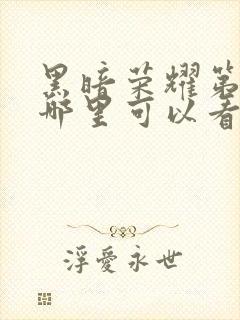 黑暗荣耀第
哪里可以看
浮愛永世